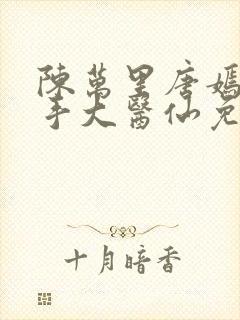 陳萬里唐嫣
手大醫仙免
十月暗香